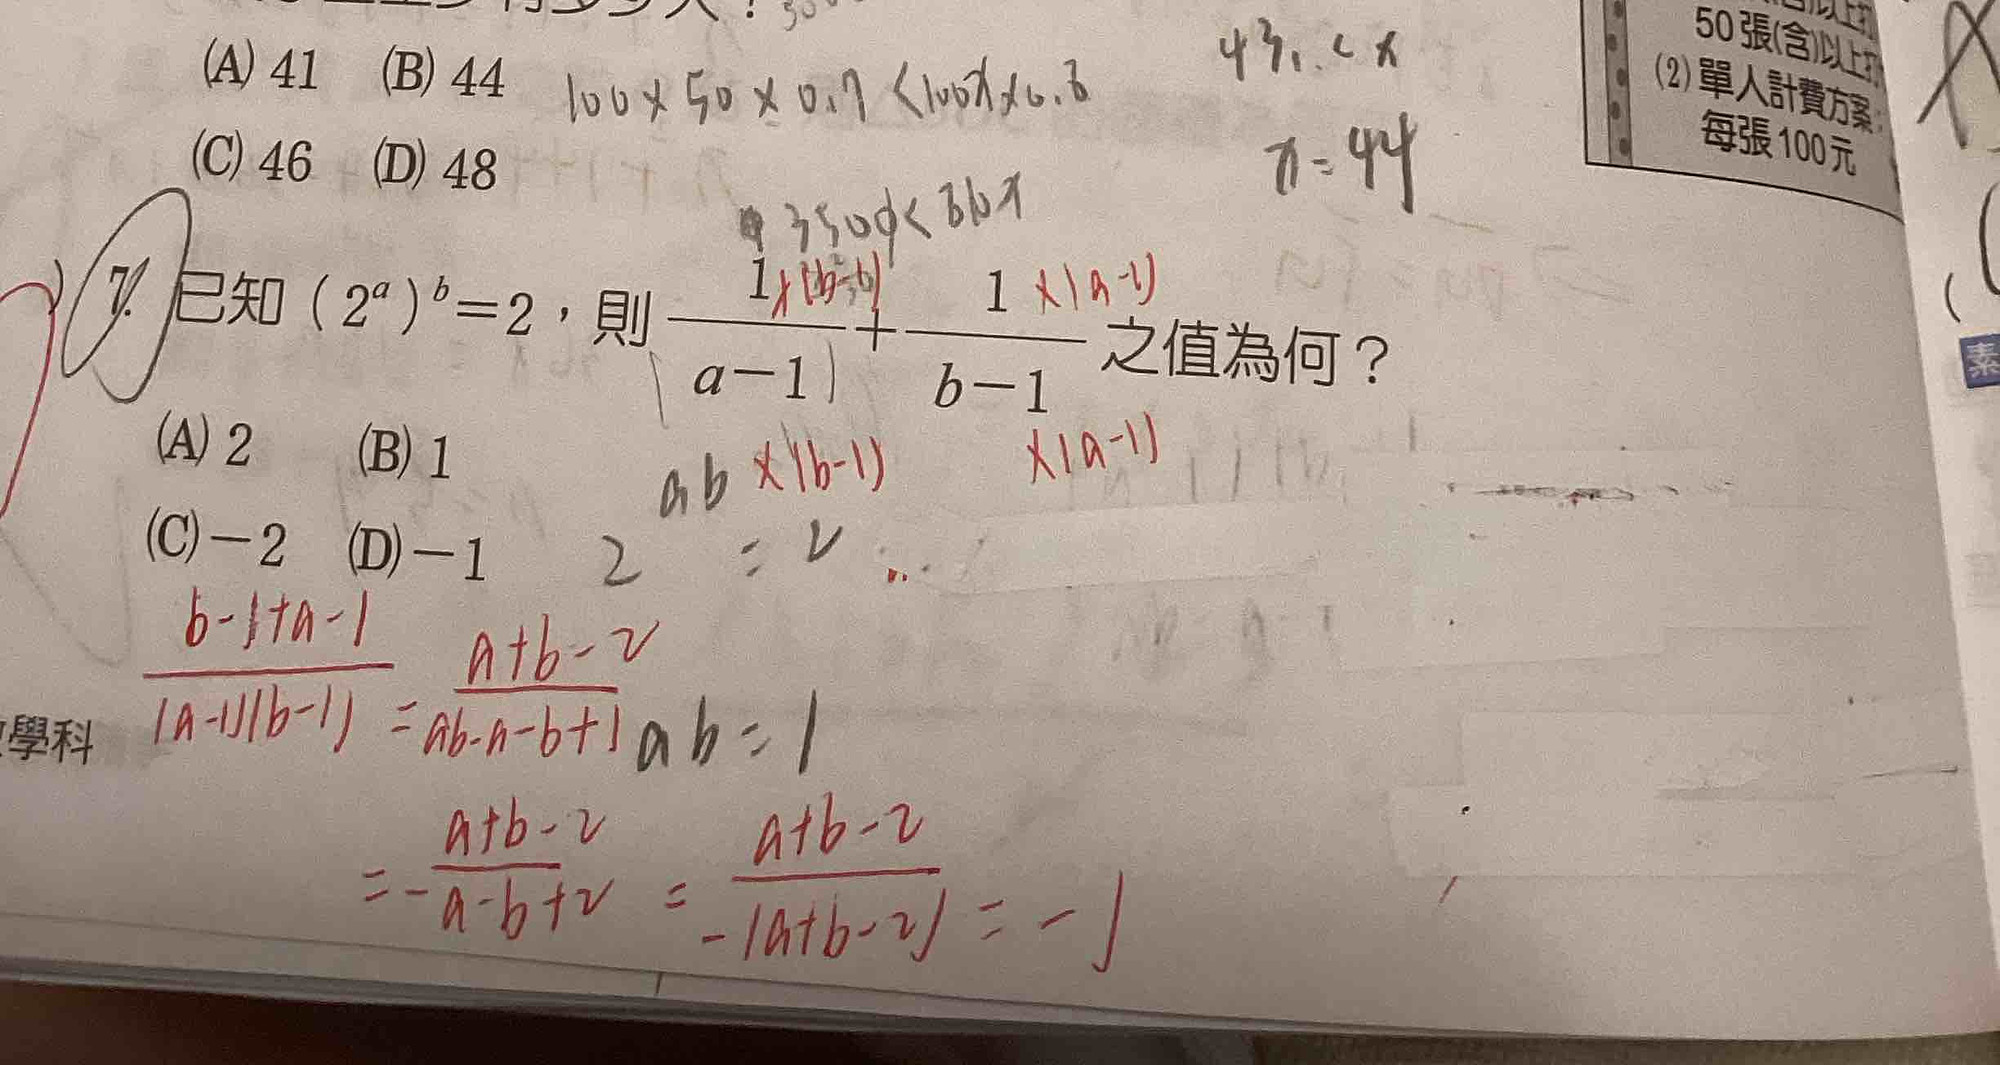 (A) 41 (B) 44
100×50×0.7<100x×0.8
43.<x
(C) 46 (D) 48
x=44
3500<80x
50張(含)以上打
(2)單人計費方案:
每張100元
7. 已知(2^a)^b=2,則 1/(a-1) + 1/(b-1) 之值為何?
×(b-1) ×(a-1)
×(b-1) ×(a-1)
(A) 2 (B) 1
ab
(C)-2 (D)-1
2 = 2
(b-1+a-1)/((a-1)(b-1)) = (a+b-2)/(ab-a-b+1)
ab=1
學科
= (a+b-2)/(-a-b+2) = (a+b-2)/(-(a+b-2)) = -1
素